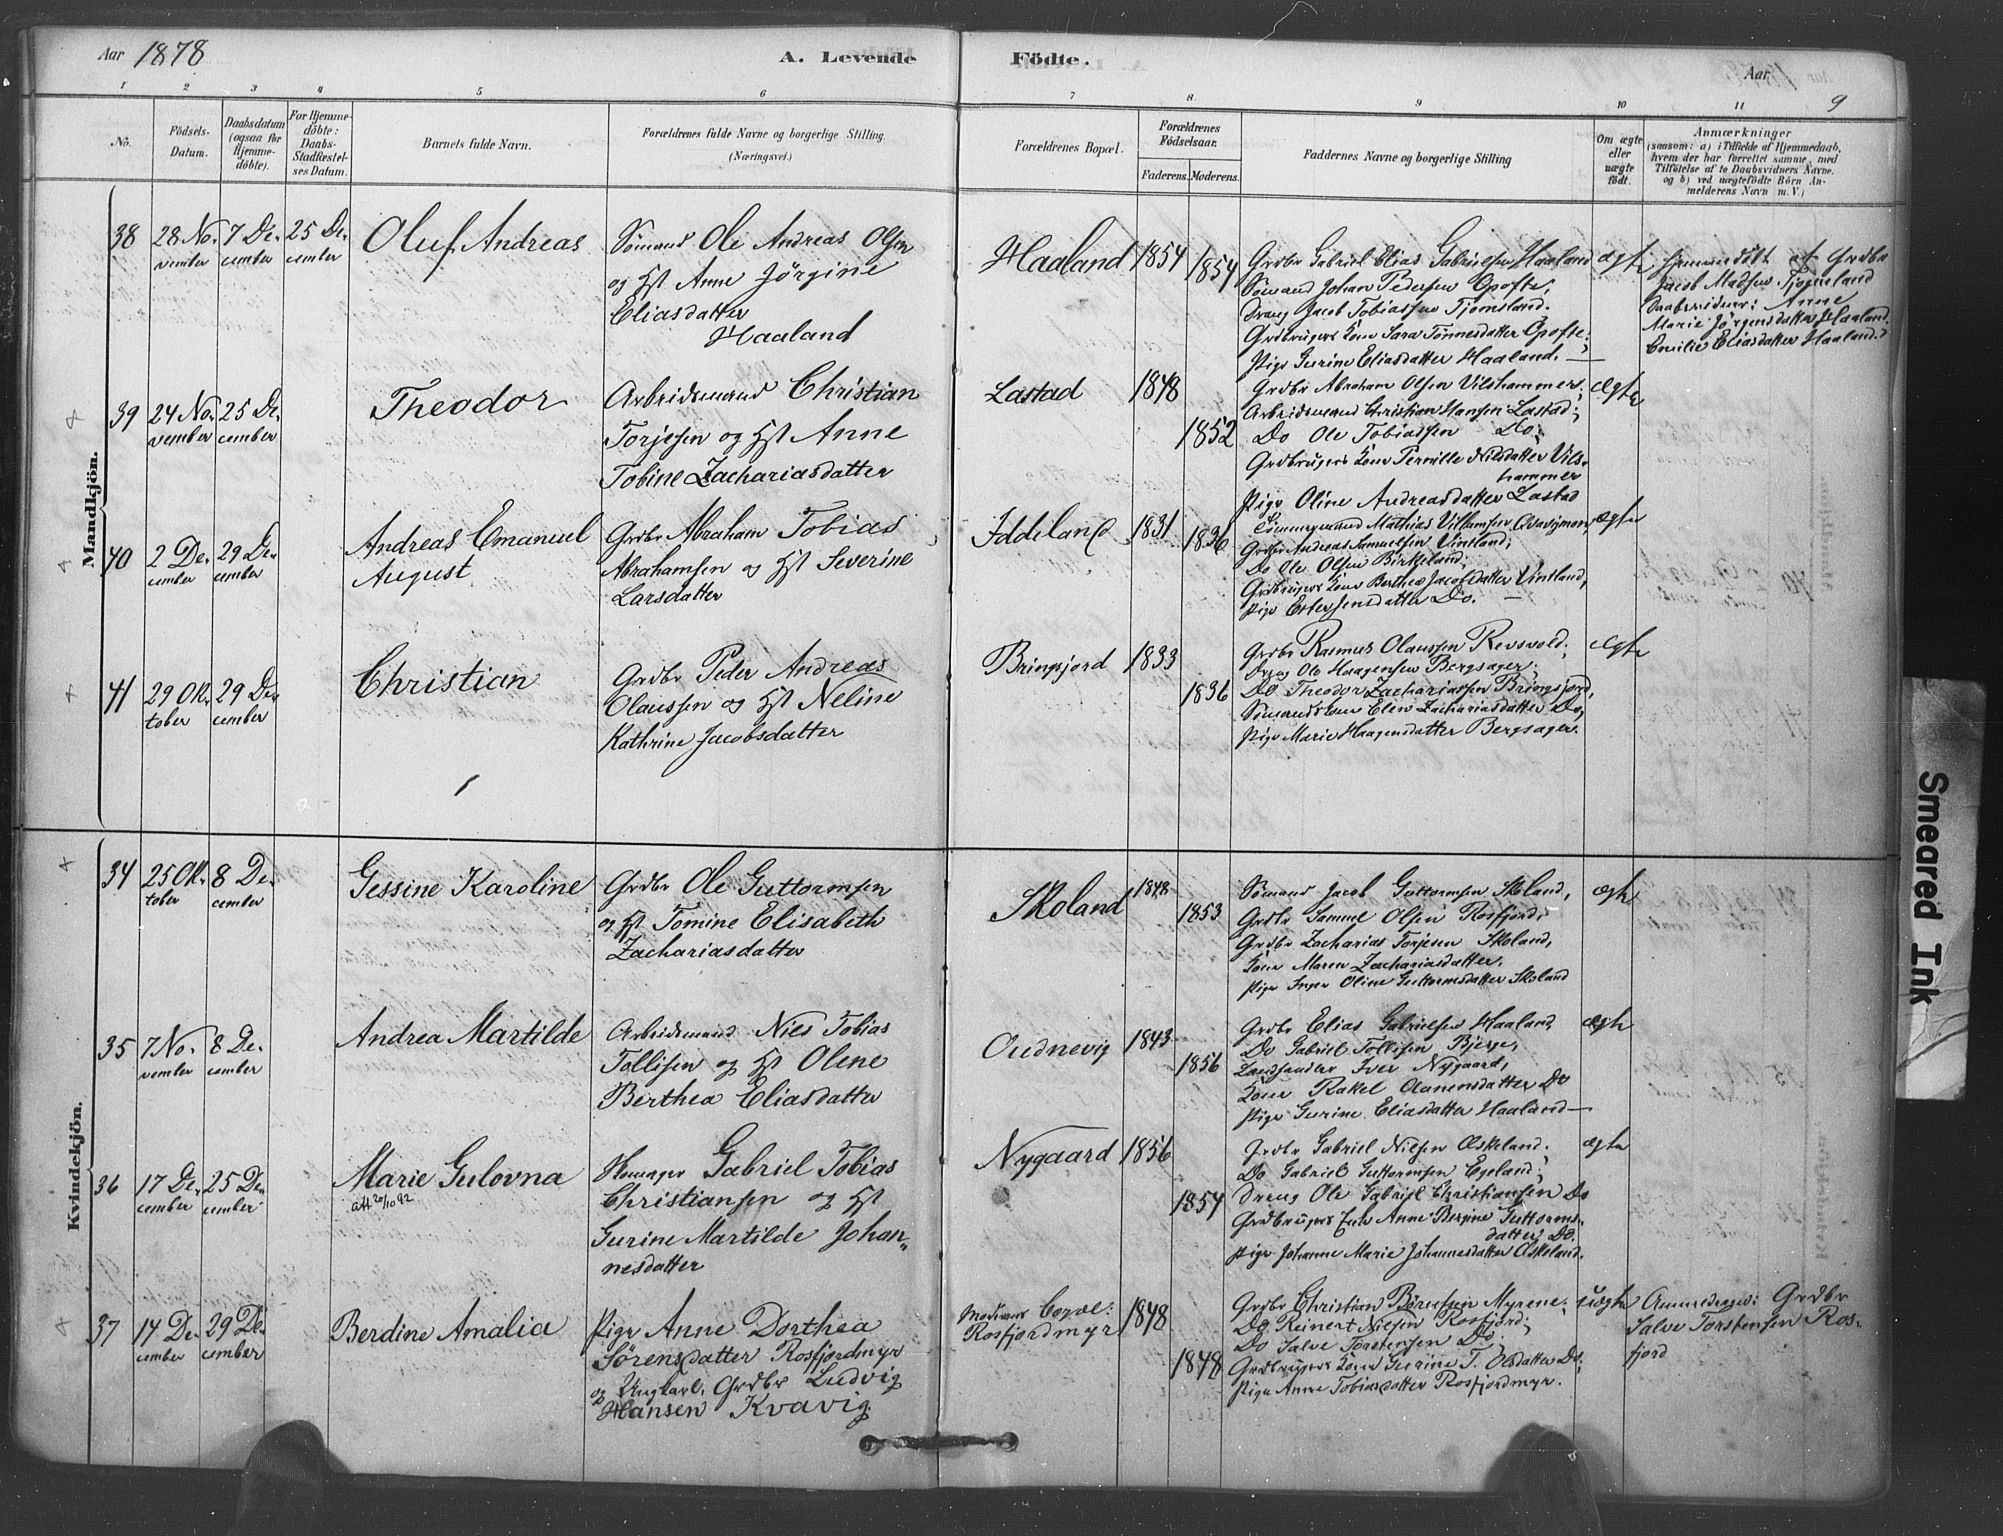 Aar 1878
A. Levende Födte.
Aar
9
1 2 3 4 5 6 7 8 9 10 11
No.
Födsels-Datum.
Daabsdatum (ogsaa for Hjemme-döbte).
For Hjemme-döbte: Daabs-Stadfæstel-ses Datum.
Barnets fulde Navn.
Forældrenes fulde Navne og borgerlige Stilling. (Næringsvei.)
Forældrenes Bopæl.
Forældrenes Födselsaar.
Faderens. Moderens.
Faddernes Navne og borgerlige Stilling
Om ægte eller uægte födt.
Anmærkninger
(saasom: a) i Tilfælde af Hjemmedaab,
hvem der har forrettet samme, med
Tilföielse af to Daabsvidners Navne.
og b) ved uægtefödte Börn An-
melderens Navn m. V.)
Mandkjön.
38
28 No-
vember
7 De-
cember
25 De-
cember
Oluf Andreas
Sömand Ole Andreas Olsen
og Hst Anne Jörgine
Eliasdatter
Haaland
Haaland
1854
1854
Grdbr Gabriel Elias Gabrielsen Haaland
Sömand Johan Pedersen Opofte;
Dreng Jacob Tobiassen Tjomsland.
Grdbrugers Kone Sara Tönnesdatter Opofte;
Pige Gurine Eliasdatter Haaland.
ægte
Hjemmedöbt af Grdbr
Jacob Madsen Tjomsland
Daabsvidner: Anne
Marie Jörgensdatter Haaland.
Emilie Eliasdatter Haaland.
39
24 No-
vember
25 De-
cember
Theodor
Arbeidsmand Christian
Torjesen og Hst Anne
Tobine Zachariasdatter
Lastad
1848
1852
Grdbr Abraham Olsen Vilshammer;
Arbeidsmand Christian Hansen Lastad;
Do Ole Tobiassen Do;
Grdbrugers Kone Pernille Nilsdatter Vils-
hammer
Pige Oline Andreasdatter Lastad
ægte
40
2 De-
cember
29 De-
cember
Andreas Emanuel
August
Grdbr Abraham Tobias
Abrahamsen og Hst Severine
Larsdatter
Iddeland
1831
1836
Tömmermand Mathias Villumsen
Grdbr Andreas Samuelsen Vintland;
Do Ole Olsen Birkeland;
Grdbrugers Kone Berthea Jacobsdatter Vintland,
Pige Ester Jensdatter Do.
ægte
41
29 Ok-
tober
29 De-
cember
Christian
Grdbr Peder Andreas
Olaussen og Hst Neline
Kathrine Jacobsdatter
Bringsjord
1833
1836
Grdbr Rasmus Olaussen Revsvold;
Dreng Ole Haagensen Bergsager;
Do Theodor Zachariassen Bringsjord,
Sömands Kone Elen Zachariasdatter Do,
Pige Marie Haagensdatter Bergsager.
ægte
Kvindekjön.
34
25 Ok-
tober
8 De-
cember
Gessine Karoline
Grdbr Ole Guttormsen
og Hst Tomine Elisabeth
Zachariasdatter
Skoland
1848
1853
Sömand Jacob Guttormsen Skoland,
Grdbr Samuel Olsen Rosfjord;
Grdbr Zacharias Torjesen Skoland,
Kone Maren Zachariasdatter,
Pige Inger Oline Guttormsdatter Skoland
ægte
35
7 No-
vember
8 De-
cember
Andrea Martilde
Arbeidsmand Niels Tobias
Tollisen og Hst Olene
Berthea Eliasdatter
Oudnevig
1843
1856
Grdbr Elias Gabrielsen Haaland,
Do Gabriel Tollisen Bjerge,
Landhandler Iver Nygaard,
Kone Rakel Aanensdatter Do
Pige Gurine Eliasdatter Haaland
ægte
36
17 De-
cember
25 De-
cember
Marie Gulovna
att 20/10 92
Gabriel Tobias
Christiansen og Hst
Gurine Martilde Johan-
nesdatter
Nygaard
1856
1854
Grdbr Gabriel Nilsen Öskeland;
Do Gabriel Guttormsen Egeland;
Dreng Ole Gabriel Christiansen Do
Grdbrugers Enke Anne Bergine Guttorms-
datter, Do.
Pige Johanne Marie Johannesdatter Öskeland.
ægte
37
14 De-
cember
29 De-
cember
Berdine Amalia
Pige Anne Dorthea
Sörensdatter Rosfjordmyr
og Ungkarl, Grdbr Ludvig
Hansen Kvavig.
Moderens Bopæl:
Rosfjordmyr
1848
1848
Grdbr Christian Börresen Myrene;
Do Reinert Nielsen Rosfjord;
Do Salve Torstensen Do;
Grdbrugers Kone Gurine T. Olsdatter Do;
Pige Anne Tobiasdatter Rosfjordmyr.
uægte
Anmeldtes: Grdbr
Salve Torstensen Ros-
fjord
Smeared Ink